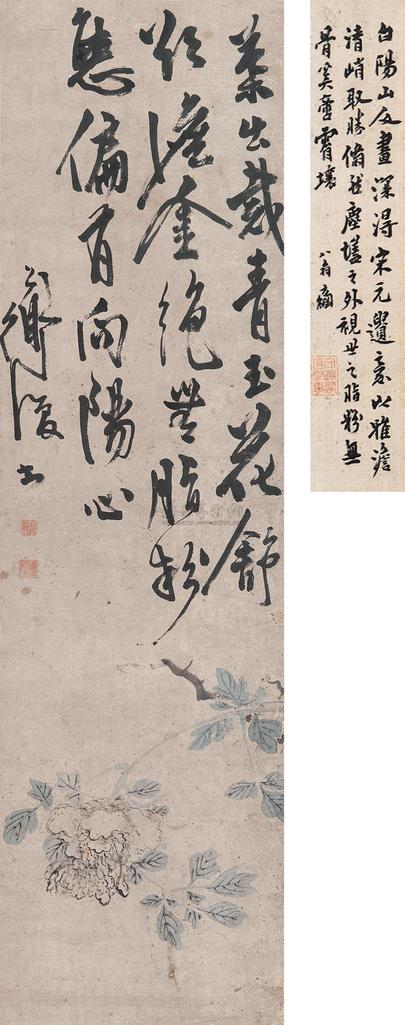 葉出裁青玉花舒
澹金絕無脂粉
態偏有向陽心
道復書
白陽山人畫深得宋元遺意以雅澹
清峭取勝翛然塵壒之外視世之脂粉無
骨奚啻霄壤
翁